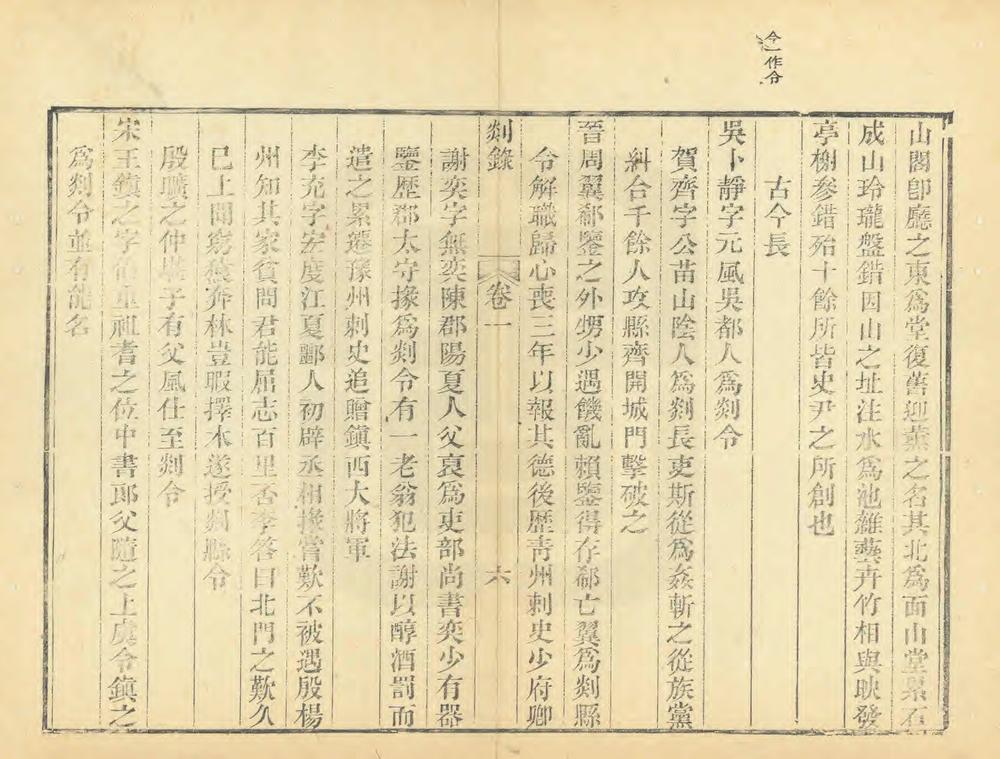 今一作令
山閣卽廳之東爲堂復舊迎薰之名其北爲面山堂累石
成山玲瓏盤錯因山之址注水爲池雜藝卉竹相與映發
亭榭參錯殆十餘所皆史尹之所創也
古今長
吳卜靜字元風吳郡人爲剡令
賀齊字公苗山陰人爲剡長吏斯從爲姦斬之從族黨
糾合千餘人攻縣齊開城門擊破之
晉周翼郗鑒之外甥少遇饑亂賴鑒得存郗亡翼爲剡縣
令解職歸心喪三年以報其德後歷靑州刺史少府卿
剡錄 卷一 六
謝奕字無奕陳郡陽夏人父裒爲吏部尚書奕少有器
鑒歷郡太守掾爲剡令有一老翁犯法謝以醇酒罰而
遣之累遷豫州刺史追贈鎭西大將軍
李充字宏度江夏鄳人初辟丞相掾嘗歎不被遇殷楊
州知其家貧問君能屈志百里否李答曰北門之歎久
已上聞窮猿奔林豈暇擇木遂授剡縣令
殷曠之仲堪子有父風仕至剡令
宋王鎭之字 重祖耆之位中書郞父隨之上虞令鎭之
爲剡令並有能名